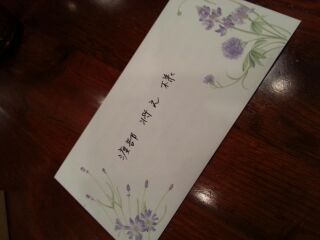 渡部 将之 様